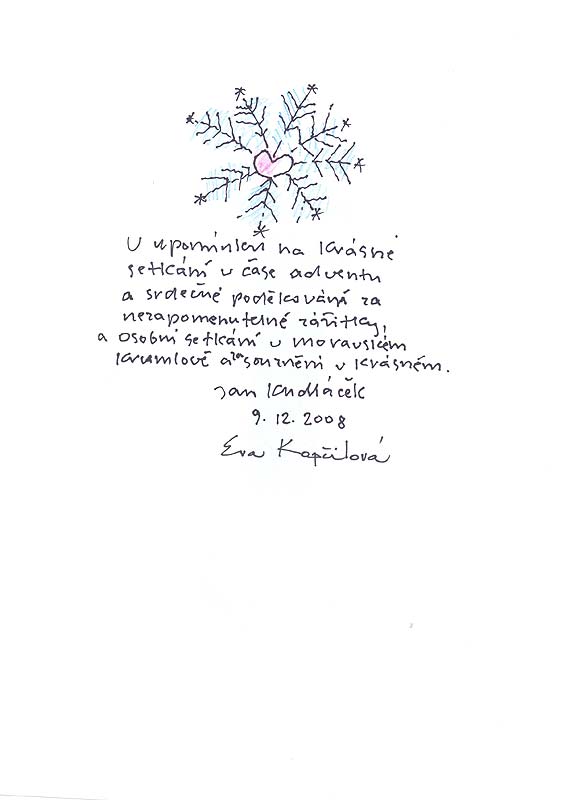 V upomínku na krásné
setkání v čase adventu
a srdečné poděkování za
nezapomenutelné zážitky,
a osobní setkání v moravském
Krumlově a za souznění v krásném.
Jan Kudláček
9. 12. 2008
Eva